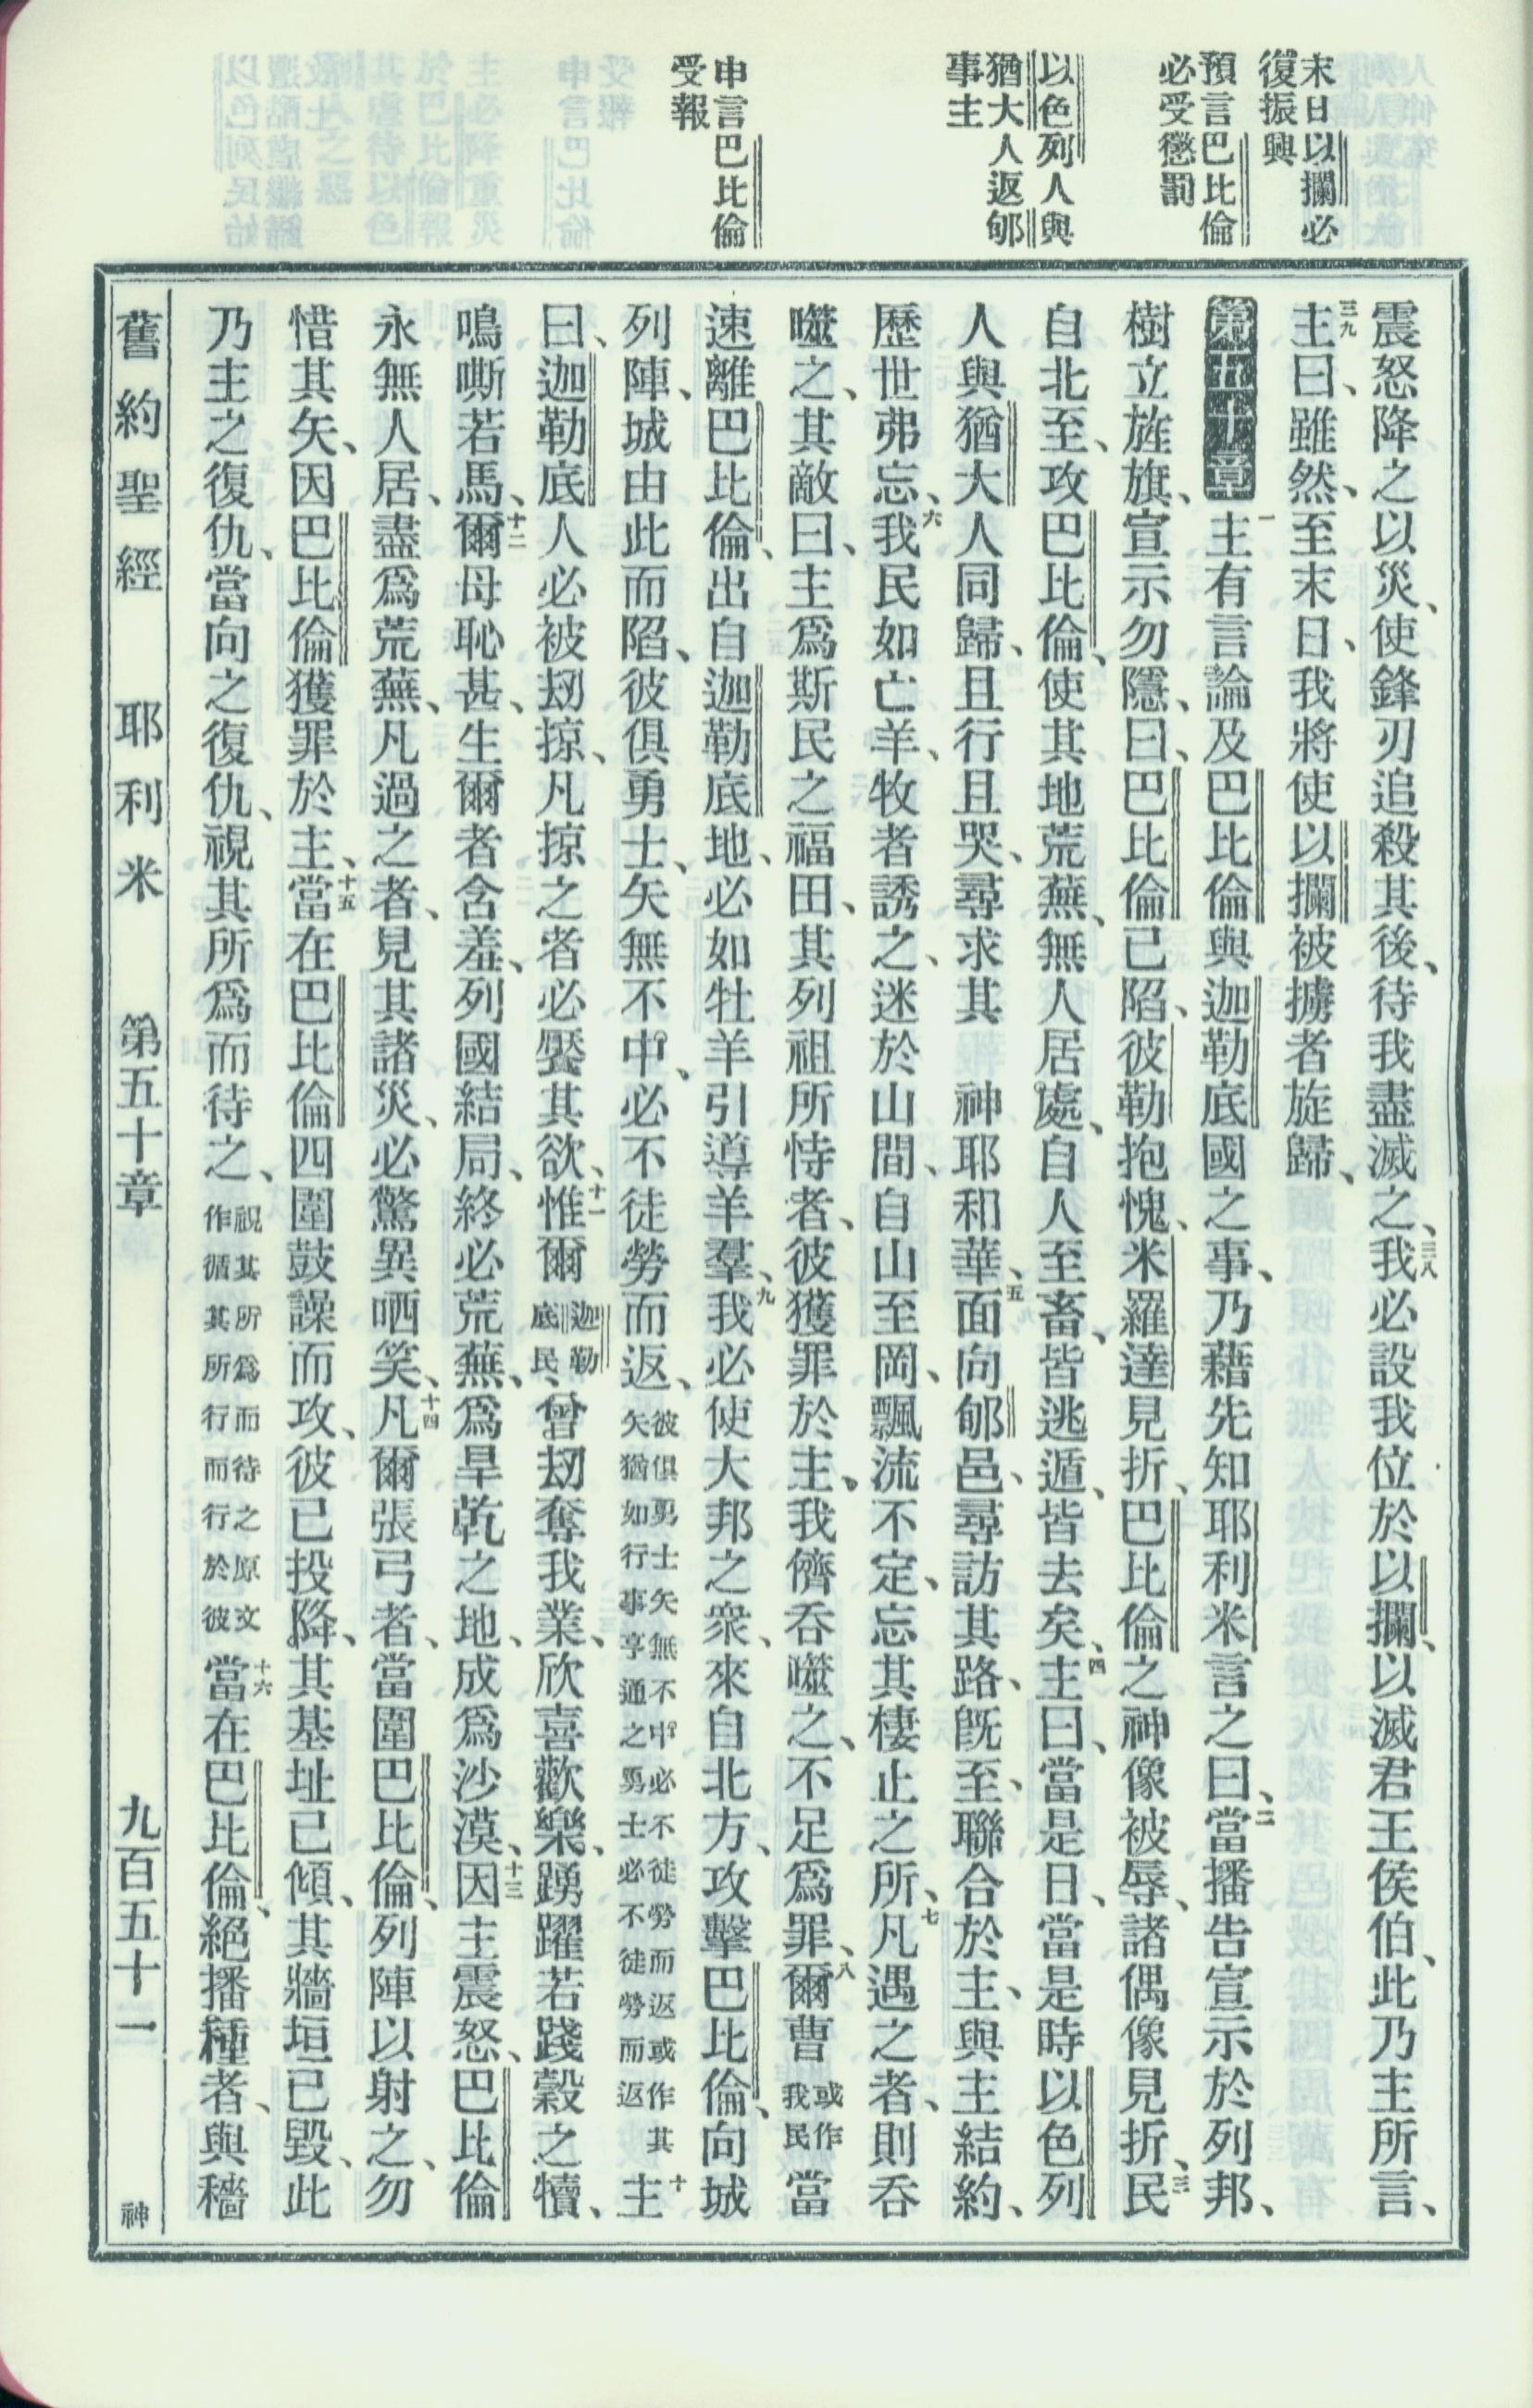 末日以攔必
復振興
預言巴比倫
必受懲罰
以色列人與
猶大人返郇
事主
申言巴比倫
受報
震怒降之以災、使鋒刃追殺其後、待我盡滅之、三八我必設我位於以攔、以滅君王侯伯、此乃主所言、
三九主曰、雖然、至末日、我將使以攔被擄者旋歸、
第五十章 一主有言論及巴比倫與迦勒底國之事、乃藉先知耶利米言之曰、二當播告宣示於列邦、
樹立旌旗、宣示勿隱、曰、巴比倫已陷、彼勒抱愧、米羅達見折、巴比倫之神像被辱、諸偶像見折、三民
自北至、攻巴比倫、使其地荒蕪、無人居處、自人至畜、皆逃遁、皆去矣、四主曰、當是日、當是時、以色列
人與猶大人同歸、且行且哭、尋求其 神耶和華、五面向郇邑、尋訪其路、旣至、聯合於主、與主結約、
歷世弗忘、六我民如亡羊、牧者誘之、迷於山間、自山至岡、飄流不定、忘其棲止之所、七凡遇之者、則吞
噬之、其敵曰、主爲斯民之福田、其列祖所恃者、彼獲罪於主、我儕吞噬之、不足爲罪、八爾曹或作我民當
速離巴比倫、出自迦勒底地、必如牡羊引導羊羣、九我必使大邦之衆、來自北方、攻擊巴比倫、向城
列陣、城由此而陷、彼俱勇士、矢無不中、必不徒勞而返、彼俱勇士矢無不中必不徒勞而返或作其矢猶如行事亨通之勇士必不徒勞而返十主
曰、迦勒底人必被刼掠、凡掠之者、必饜其欲、十一惟爾迦勒底民、曾刼奪我業、欣喜歡樂、踴躍若踐穀之犢、
鳴嘶若馬、十二爾母恥甚、生爾者含羞、列國結局、終必荒蕪、爲旱乾之地、成爲沙漠、十三因主震怒、巴比倫
永無人居、盡爲荒蕪、凡過之者、見其諸災、必驚異哂笑、十四凡爾張弓者、當圍巴比倫、列陣以射之、勿
惜其矢、因巴比倫獲罪於主、十五當在巴比倫四圍鼓譟而攻、彼已投降、其基址已傾、其牆垣已毀、此
乃主之復仇、當向之復仇、視其所爲而待之、視其所爲而待之原文作循其所行而行於彼十六當在巴比倫、絕播種者、與穡
舊約聖經 耶利米 第五十章 九百五十一 神